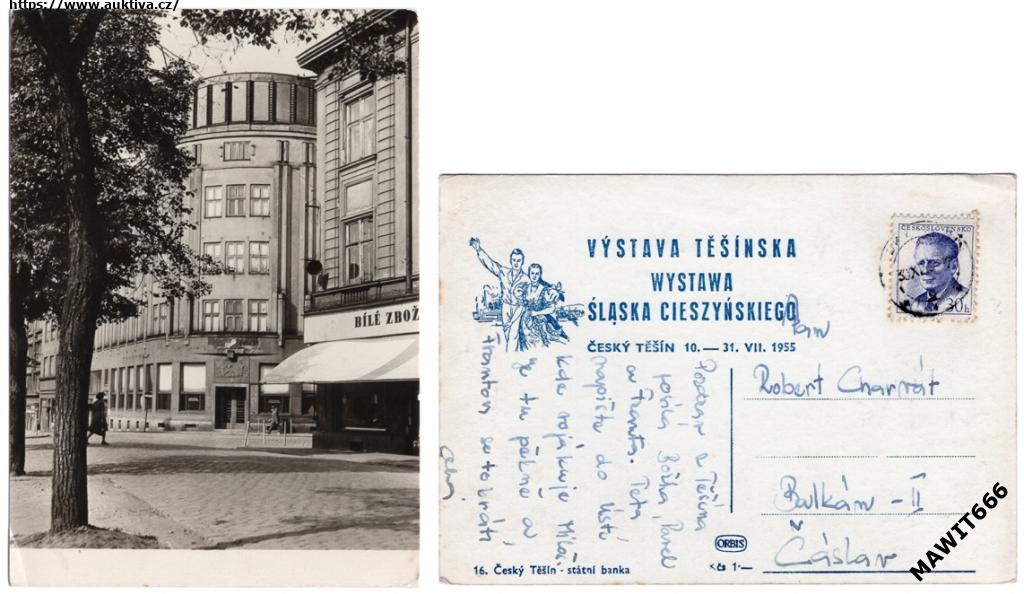 https://www.auktiva.cz/
BÍLÉ ZBOŽ
VÝSTAVA TĚŠÍNSKA
WYSTAWA
ŚLĄSKA CIESZYŃSKIEGO
ČESKÝ TĚŠÍN 10. — 31. VII. 1955
ČESKOSLOVENSKO
30h
Pan
Robert Charvát
Balkán - II
Čáslav
Pozdrav z Těšína
Boška, Pavel
a Franta. Teta
napište do Ústí
kde vojákuje Milan.
Je tu pěkně a
Frantovi se to krátí
Ahoj
ORBIS
Kčs 1·—
16. Český Těšín - státní banka
MAWIT666